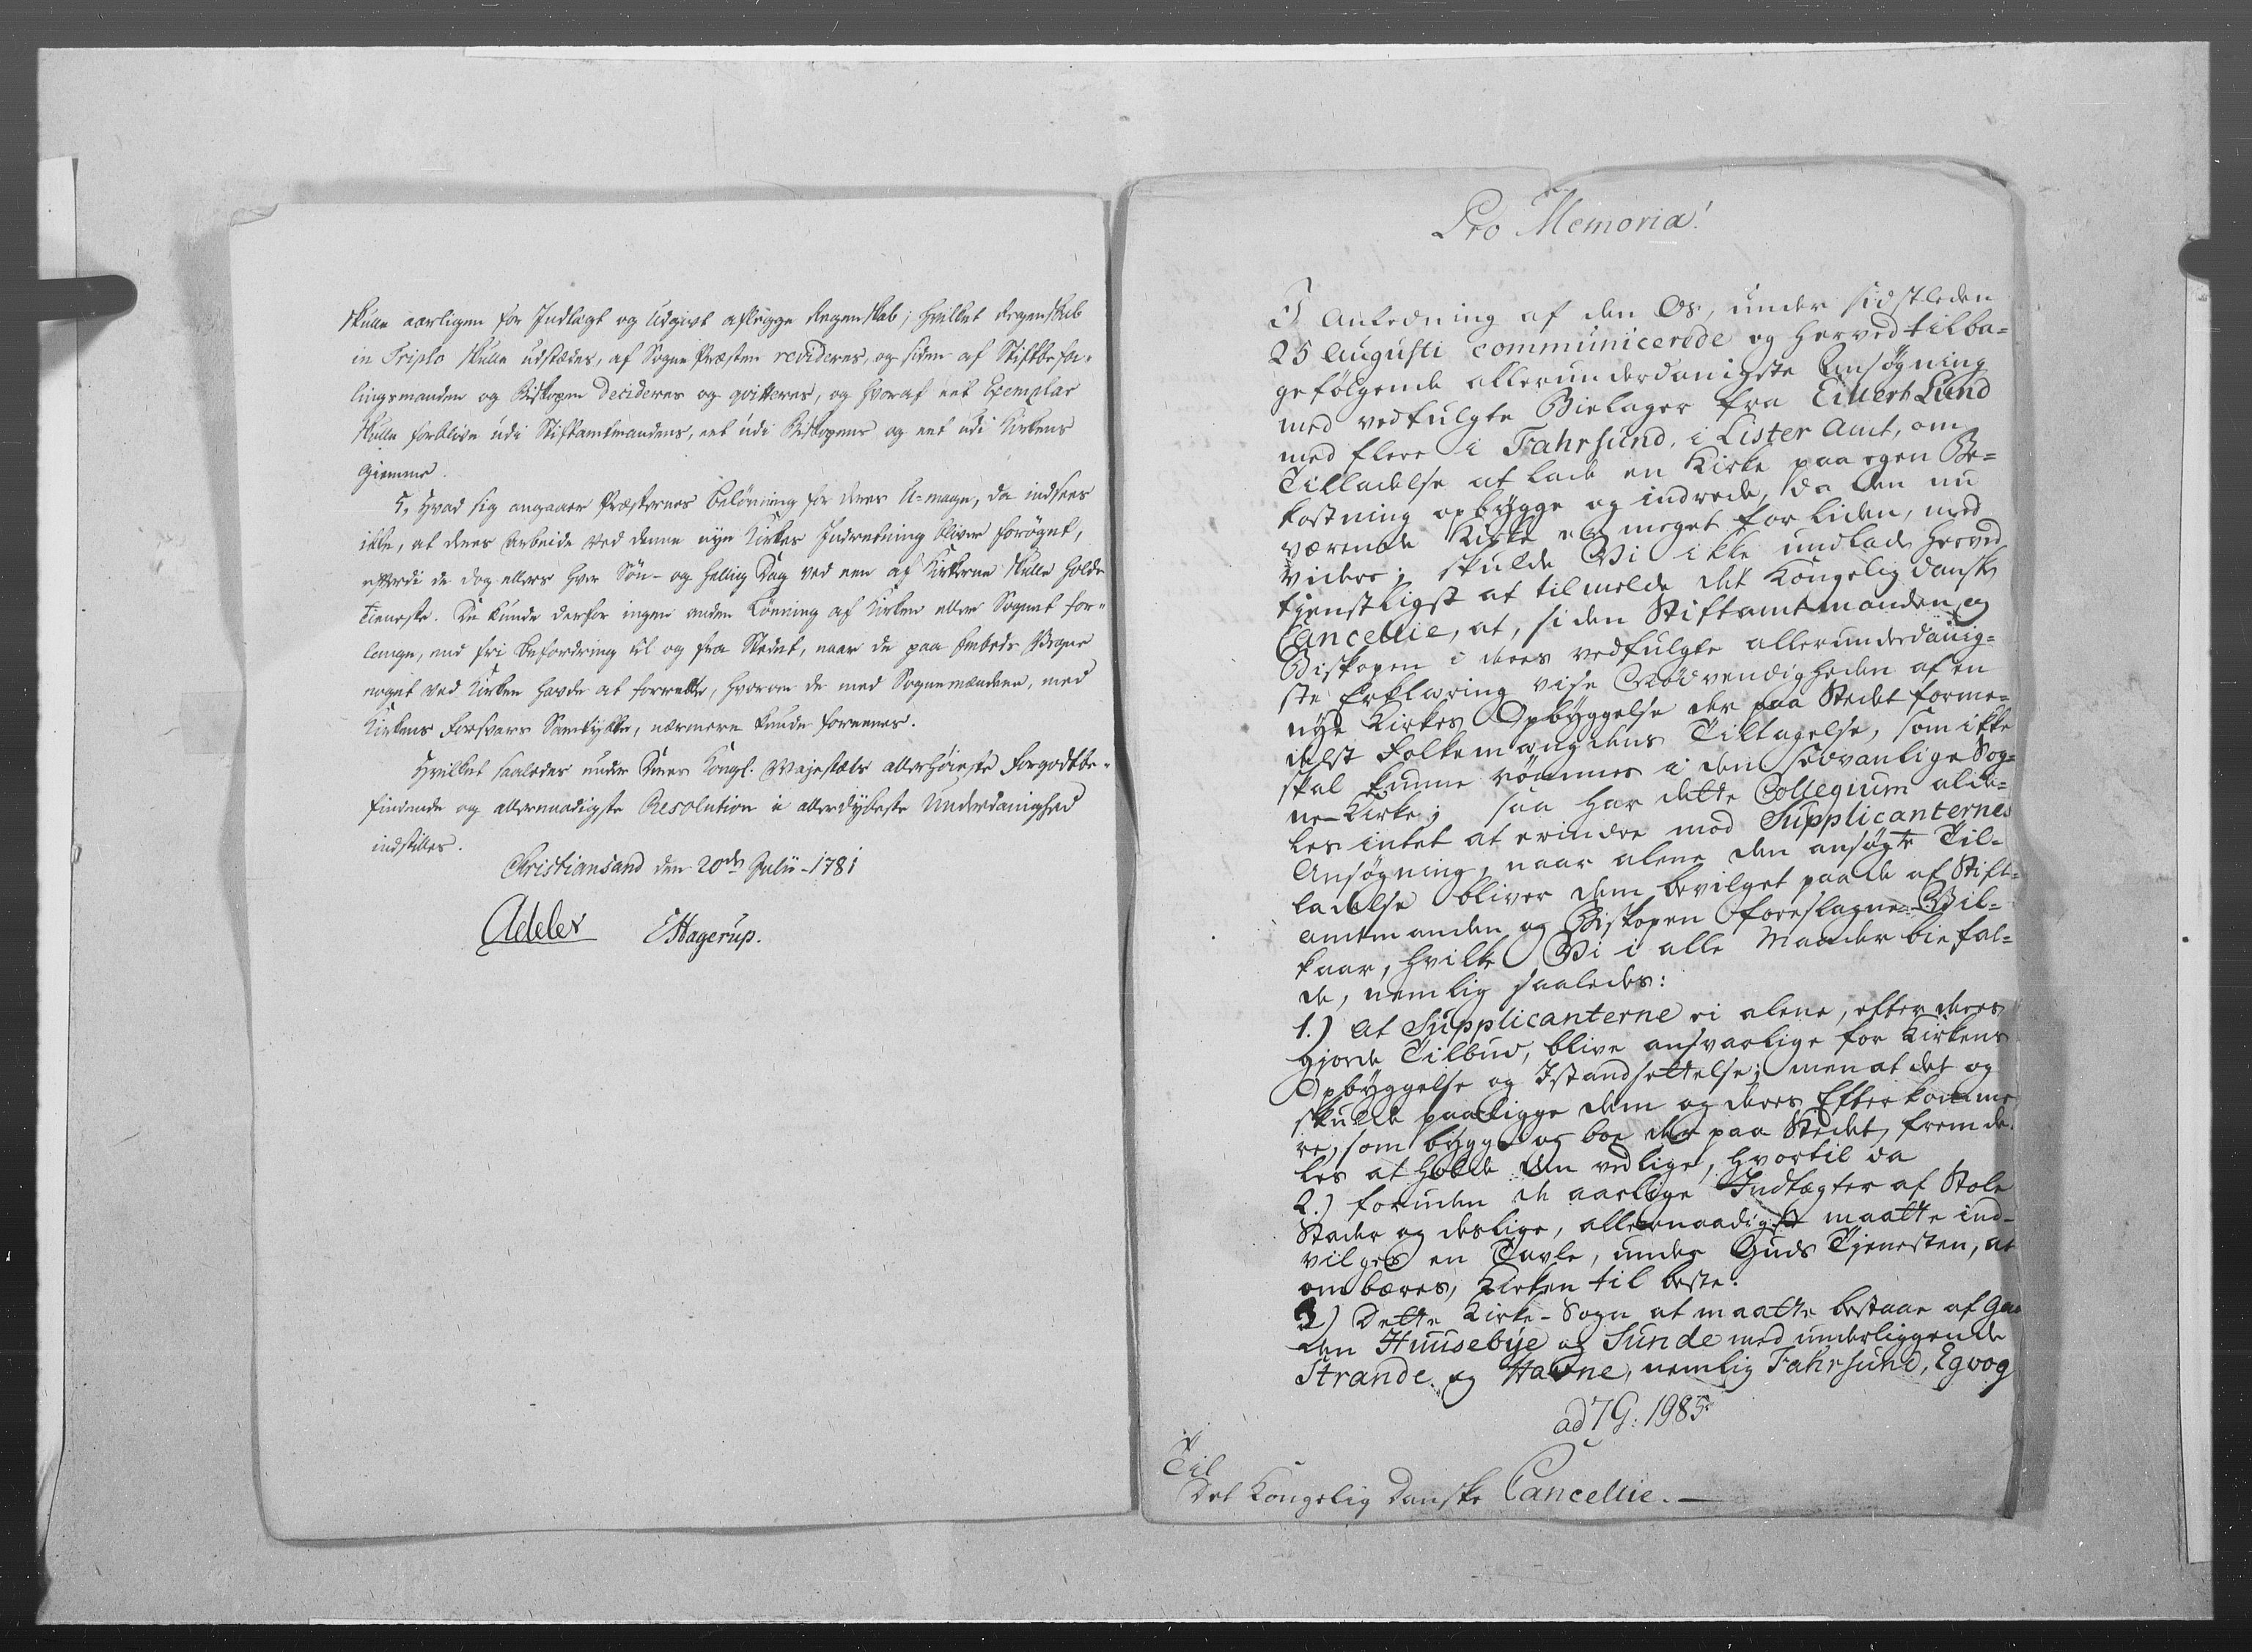 skulle aarligen for Indtægt og Udgivt aflegge Regenskab; hvilket Regenskab
in Triplo skulle udstædes, af Sogne Præsten revideres, og siden af Stiftbefa-
lingsmanden og Biskopen decideres og qvitteres, og hvoraf eet Exemplar
skulle forblive udi Stiftamtmandens, eet udi Biskopens og eet udi Kirkens
Giemme.
5, Hvad sig angaaer Præsternes Belönning for deres U-mage, da indsees
ikke, at deres Arbeide ved denne nye Kirkes Indretning bliver forøget,
efterdi de dog ellers hver Søn- og hellig Dag ved een af Kirkerne skulle holde
Tieneste. De kunde derfor ingen anden Lönning af Kirken eller Sognet for-
lange, end fri Befordring til og fra Stedet, naar de paa Embeds Vegne
noget ved Kirken havde at forrette, hvorom de med Sognemændene, med
Kirkens Forsvars Samtykke, nærmere kunde forenes.
Hvilket saaledes under Deres Kongl. Majestæts allerhøieste Forgodtbe-
findende og allernaadigste Resolution i allerdybeste Underdanighed
indstilles.
Christiansand den 20de Julii 1781
Adeler EHagerup.
Pro Memoria!
I Anledning af den Os, under sidstleden
25 Augusti communicerede og herved tilba-
gefølgende allerunderdanigste Ansøgning
med vedfulgte Bielager fra Eilert Lund
med flere i Fahrsund, i Lister Amt, om
Tilladelse at lade en Kirke paa egen Be-
kostning opbygge og indrede, da den nu
værende Kirke er meget for liden, med
videre; skulde Vi ikke undlade herved
tjenstligst at tilmelde det Kongelig danske
Cancellie, at, siden Stiftamtmanden og
Biskopen i deres vedfulgte allerunderdanig-
ste Erklæring vise Nødvendigheden af en
nye Kirkes Opbyggelse der paa Stedet forme-
delst Folkemængdens Tiltagelse, som ikke
skal kunne rømmes i den sædvanlige Sog-
ne-Kirke; saa har dette Collegium alde-
les intet at erindre mod Supplicanternes
Ansøgning, naar alene den ansøgte Til-
ladelse bliver dem bevilget paa de af Stift-
amtmanden og Biskopen foreslagne Vil-
kaar, hvilke Vi i alle Maader biefal-
de, nemlig saaledes:
1.) At Supplicanterne ei alene, efter deres
gjorde Tilbud, blive ansvarlige for Kirkens
Opbyggelse og Istandsettelse; men at det og
skulde paaligge dem og deres Efterkomme
re, som bygge og boe der paa Stedet, fremde-
les at holde den vedlige, hvortil da
2.) foruden de aarlige Indtægter af Stole
Stader og deslige, allernaadigst maatte ind-
vilges en Tavle, under Guds Tjenesten, at
ombæres, Kirken til beste.
3) Dette Kirke-Sogn at maatte bestaae af Gaar
den Huusebye og Sunde med underliggende
Strande og Havne, nemlig Fahrsund, Egvog
ad 7 G: 1985
Til
Det Kongelig Danske Cancellie.